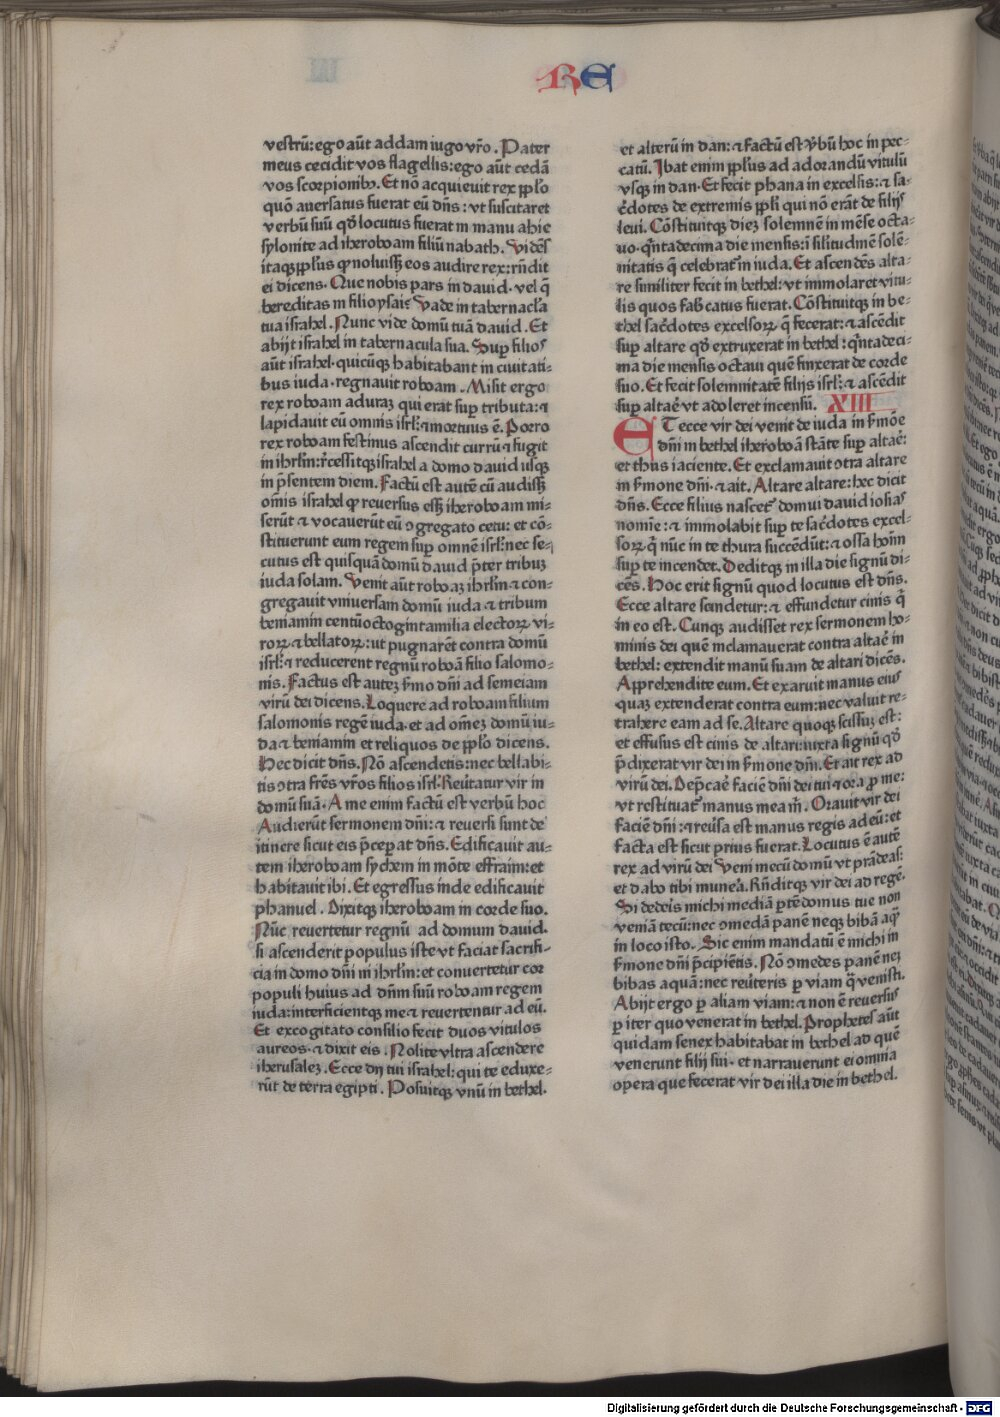 RE
vestrū: ego aūt addam iugo vr̄o. Pater
meus cecidit vos flagellis: ego aūt cedā
vos scorpionibꝫ. Et nō acquieuit rex pp̄lo
quō auersatus fuerat eū dn̄s: vt suscitaret
verbū suū qd̄ locutus fuerat in manu ahie
sylonite ad iheroboam filiū nabath. Vidēs
itaqꝫ pp̄lus ꝙ noluissꝫ eos audire rex: rn̄dit
ei dicens. Que nobis pars in dauid. vel q̄
hereditas in filio ysaie? Vade in tabernacl̓a
tua israhel. Nunc vide domū tuā dauid. Et
abijt israhel in tabernacula sua. Sup̲ filios
aūt israhel. quicūqꝫ habitabant in ciuitati-
bus iuda. regnauit roboam. Misit ergo
rex roboam aduraꝫ qui erat sup̲ tributa: ⁊
lapidauit eū omnis isrl̄: ⁊ mortuus ē. Porro
rex roboam festinus ascendit currū ⁊ fugit
in ihrl̄m: r̄cessitqꝫ israhel a domo dauid usqꝫ
in p̄sentem diem. Factū est autē cū audissꝫ
om̄is israhel ꝙ reuersus essꝫ iheroboam mi-
serūt ⁊ vocauerūt eū ꝯgregato cetu: et cō-
stituerunt eum regem sup̲ omnē isrl̄: nec se-
cutus est quisquā domū dauid p̄ter tribuꝫ
iuda solam. Venit aūt roboaꝫ ihrl̄m ⁊ con-
gregauit vniuersam domū iuda ⁊ tribum
beniamin centū octoginta milia electorꝝ vi-
rorꝝ ⁊ bellatorꝝ: ut pugnarēt contra domū
isrl̄: ⁊ reducerent regnū roboā filio salomo-
nis. Factus est auteꝫ s̄mo dn̄i ad semeiam
virū dei dicens. Loquere ad roboam filium
salomonis regē iuda. et ad om̄eꝫ domū iu-
da ⁊ beniamin et reliquos de pp̄lo dicens.
Hec dicit dn̄s. Nō ascendetis: nec bellabi-
tis ꝯtra fr̄es vr̄os filios isrl̄. Reūtatur vir in
domū suā. A me enim factū est verbū hoc
Audierūt sermonem dn̄i: ⁊ reuersi sunt de
itinere sicut eis p̄cep̲at dn̄s. Edificauit au-
tem iheroboam sychem in mōte effraim: et
habitauit ibi. Et egressus inde edificauit
phanuel. Dixitqꝫ iheroboam in corde suo.
Nūc reuertetur regnū ad domum dauid.
si ascenderit populus iste vt faciat sacrifi-
cia in domo dn̄i in ihrl̄m: et conuertetur cor
populi huius ad dn̄m suū roboam regem
iuda: interficientqꝫ me ⁊ reuertentur ad eū.
Et excogitato consilio fecit duos vitulos
aureos. ⁊ dixit eis. Nolite vltra ascendere
iherusaleꝫ. Ecce dij tui israhel: qui te eduxe-
rūt de terra egipti. Posuitqꝫ vnū in bethel.
et alterū in dan: ⁊ factū est v̓bū hoc in pec-
catū. Ibat enim pp̄lus ad adorandū vitulū
vsqꝫ in dan. Et fecit phana in excelsis: ⁊ sa-
c̓dotes de extremis pp̄li qui nō erāt de filijs
leui. Cōstituitqꝫ dieꝫ solemnē in mēse octa-
uo. q̄ntadecima die mensis: ī sil̓itudinē solē-
nitatis q̄ celebrat̓ in iuda. Et ascendēs alta-
re similiter fecit in bethel: vt immolaret vitu-
lis quos fab̓catus fuerat. Cōstituitqꝫ in be-
thel sac̓dotes excelsorꝝ q̄ fecerat: ⁊ ascēdit
sup̲ altare qd̄ extruxerat in bethel: q̄ntadeci-
ma die mensis octaui quē finxerat de corde
suo. Et fecit solemnitatē filijs isrl̄: ⁊ ascēdit
sup̲ altaē vt adoleret incensū. XIII
ET ecce vir dei venit de iuda in s̓mōe
dn̄i in bethel iheroboā stāte sup̲ altaē:
et thus iaciente. Et exclamauit ꝯtra altare
in s̓mone dn̄i. ⁊ ait. Altare altare: hec dicit
dn̄s. Ecce filius nascet̓ domui dauid iosias
nomīe: ⁊ immolabit sup̲ te sac̓dotes excel-
sorꝝ q̄ nūc in te thura succēdūt: ⁊ ossa hoīm
sup̲ te incendet. Deditqꝫ in illa die signū di-
cēs. Hoc erit signū quod locutus est dn̄s.
Ecce altare scindetur: ⁊ effundetur cinis q̄
in eo est. Cunqꝫ audisset rex sermonem ho-
minis dei quē inclamauerat contra altaē in
bethel: extendit manū suam de altari dicēs.
Apprehendite eum. Et exaruit manus eius
quaꝫ extenderat contra eum: nec valuit re-
trahere eam ad se. Altare quoqꝫ scissuꝫ est:
et effusus est cinis de altari: iuxta signū qd̄
p̄dixerat vir dei in s̓mone dn̄i. Et ait rex ad
virū dei. Dep̄caē faciē dn̄i dei tui ⁊ ora p̲ me:
vt restituat̓ manus mea m̄. Orauit vir dei
faciē dn̄i: ⁊ reūsa est manus regis ad eū: et
facta est sicut prius fuerat. Locutus ē autē
rex ad virū dei Veni mecū domū vt prādeas:
et dabo tibi mune̓a. Rn̄ditqꝫ vir dei ad regē.
Si dedeis michi mediā p̲tē domus tue non
veniā tecū: nec ꝯmedā panē neqꝫ bibā aq̄
in loco isto. Sic enim mandatū ē michi in
s̓mone dn̄i p̄cipiētis. Nō ꝯmedes panē neꝫ
bibas aquā: nec reūteris p̲ viam q̄ venisti.
Abijt ergo p̲ aliam viam: ⁊ non ē reuersus
p̲ iter quo venerat in bethel. Prophetes aūt
quidam senex habitabat in bethel ad quē
venerunt filij sui. et narrauerunt ei omnia
opera que fecerat vir dei illa die in bethel.
Digitalisierung gefördert durch die Deutsche Forschungsgemeinschaft - DFG